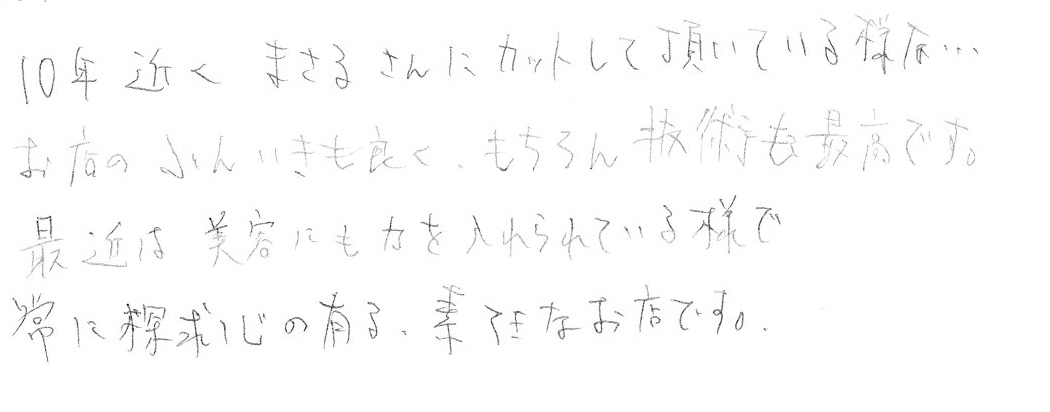 10年近く まさるさんにカットして頂いている様な…
お店のふんいきも良く、もちろん技術も最高です。
最近は美容にも力を入れられている様で
常に探求心の有る、素敵なお店です。